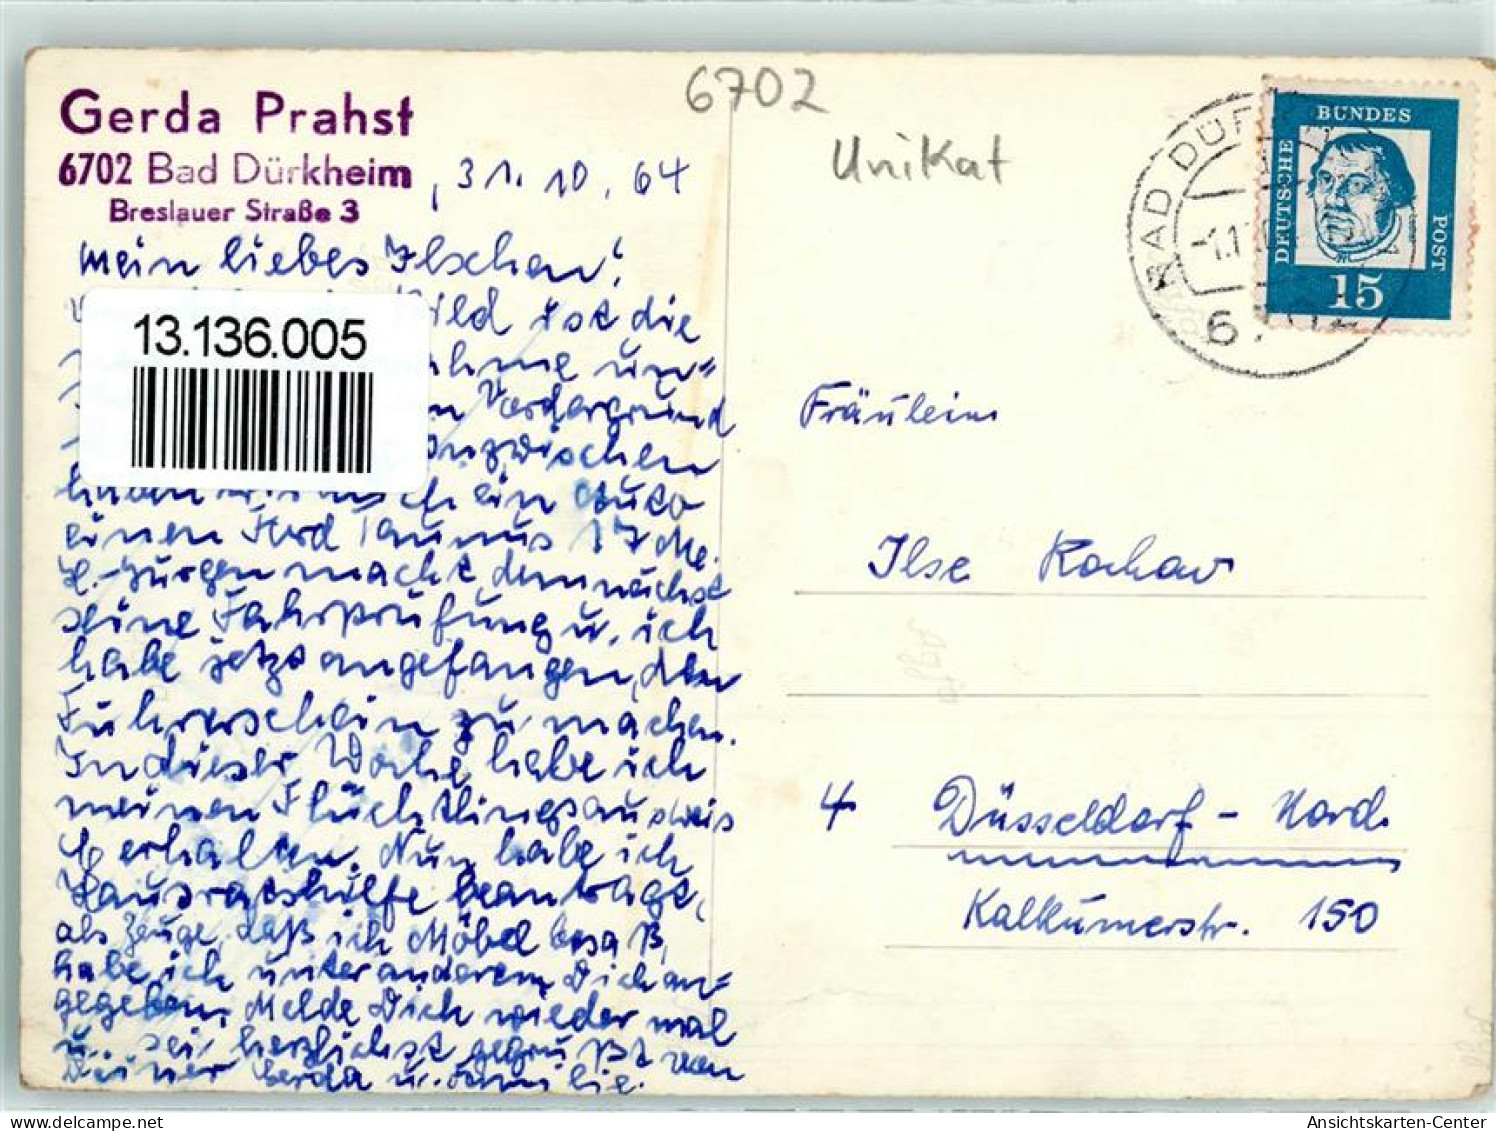 Gerda Prahst
6702 Bad Dürkheim
Breslauer Straße 3
, 31. 10. 64
Mein liebes Ilschen!
Bild ist die
un=
Vordergrund
Inzwischen
haben wir noch ein Auto
einen Ford Taunus 17 M.
H.-Jürgen macht demnächst
seine Fahrprüfung u. ich
habe jetzt angefangen, den
Führerschein zu machen.
In dieser Woche habe ich
meinen Flüchtlingsausweis
C erhalten. Nun habe ich
Hausratshilfe beantragt,
als Zeuge, daß ich Möbel besaß,
habe ich unter anderem Dich an=
gegeben. Melde Dich wieder mal
u. sei herzlichst gegrüßt von
Deiner Gerda u. Familie.
13.136.005
6702
Unikat
BAD DÜRK
-1.11
6702
DEUTSCHE
BUNDES
POST
15
Fräulein
Ilse Rochow
4 Düsseldorf - Nord.
Kalkumerstr. 150
Ansichtskarten-Center